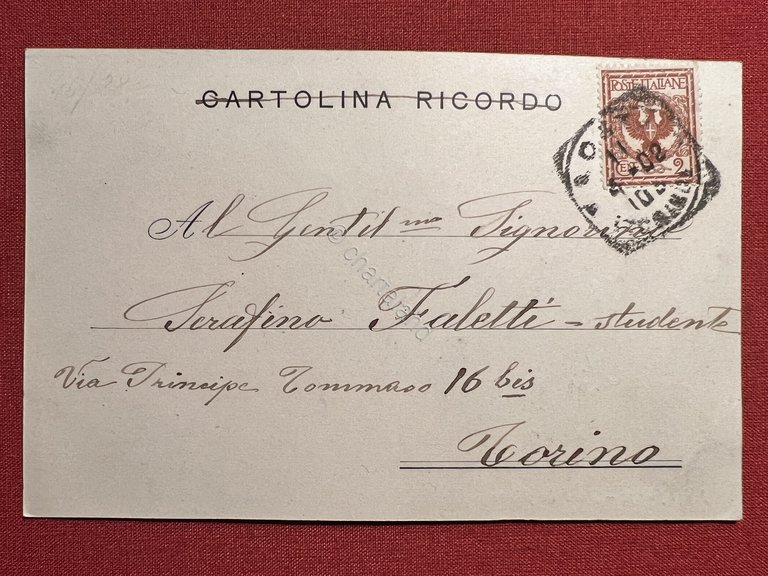 CARTOLINA RICORDO
POSTE ITALIANE
CENT. 2
11
02
10 S
Al Gentil mo Signorino
Serafino Faletti = studente
Via Principe Tommaso 16 bis
Torino
© charteramo